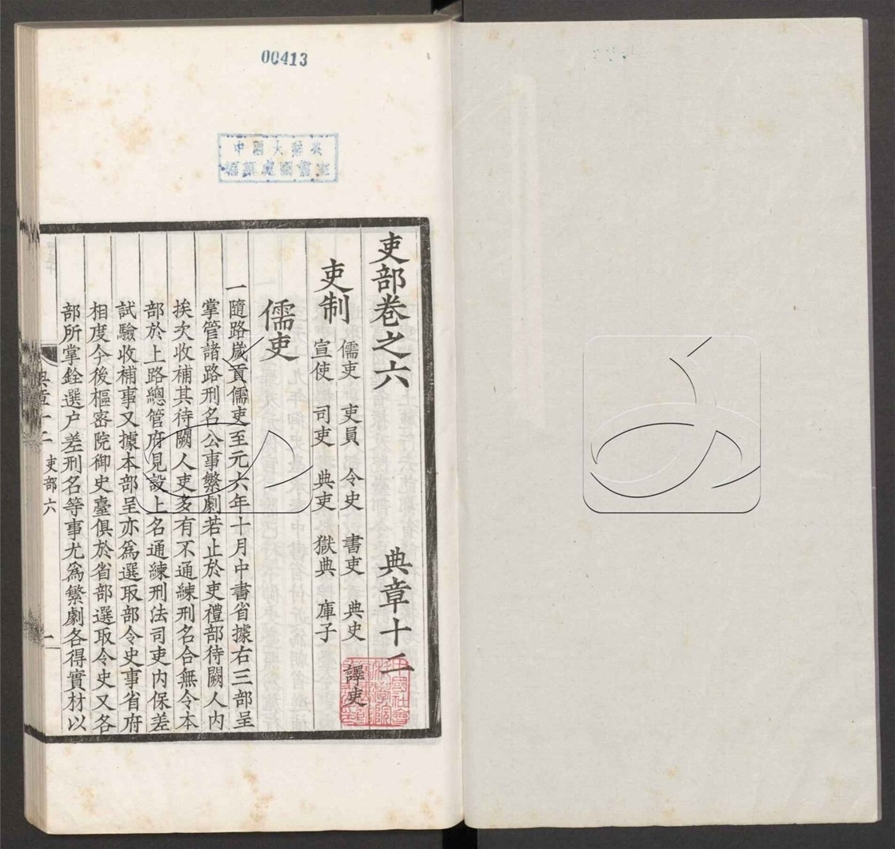 00413
吏部卷之六 典章十二
吏制 儒吏 吏員 令史 書吏 典史 譯吏
宣使 司吏 典吏 獄典 庫子
儒吏
一隨路歲貢儒吏至元六年十月中書省據右三部呈
掌管諸路刑名公事繁劇若止於吏禮部待闕人內
挨次收補其待闕人吏多有不通練刑名合無令本
部於上路總管府見設上名通練刑法司吏內保差
試驗收補事又據本部呈亦為選取部令史事省府
相度今後樞密院御史臺俱於省部選取令史又各
部所掌銓選户差刑名等事尤為繁劇各得實材以
典章十二 吏部六 一